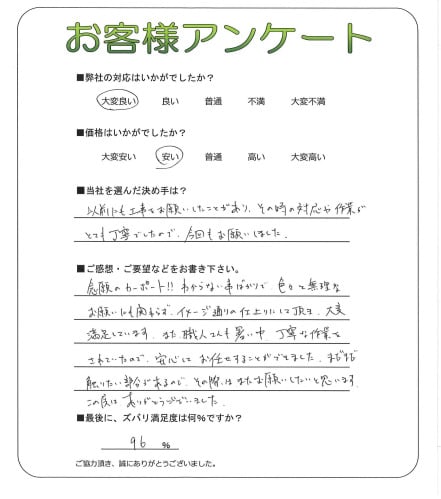 お客様アンケート
■弊社の対応はいかがでしたか?
大変良い 良い 普通 不満 大変不満
■価格はいかがでしたか?
大変安い 安い 普通 高い 大変高い
■当社を選んだ決め手は?
以前にも工事をお願いしたことがあり、その時の対応や作業が
とても丁寧でしたので、今回もお願いしました。
■ご感想・ご要望などをお書き下さい。
念願のカーポート!! わからない事ばかりで、色々と無理な
お願いにも関わらず、イメージ通りの仕上りにして頂き、大変
満足しています。また、職人さんも暑い中、丁寧な作業を
されていたので、安心してお任せすることができました。まだまだ
触りたい部分があるので、その際はまたお願いしたいと思います。
この度はありがとうございました。
■最後に、ズバリ満足度は何%ですか?
96 %
ご協力頂き、誠にありがとうございました。